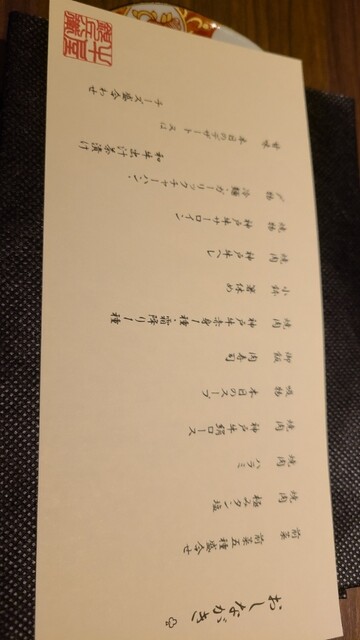 おしながき
前菜 前菜五種盛合せ
焼肉 極みタン塩
焼肉 ハラミ
焼肉 神戸牛 絹ロース
吸物 本日のスープ
御飯 肉寿司
焼肉 神戸牛赤身一種・霜降り一種
小鉢 箸休め
焼肉 神戸牛ヘレ
焼物 神戸牛サーロイン
〆物 冷麺・ガーリックチャーハン・
和牛出汁茶漬け
甘味 本日のデザート 又は
チーズ盛合わせ